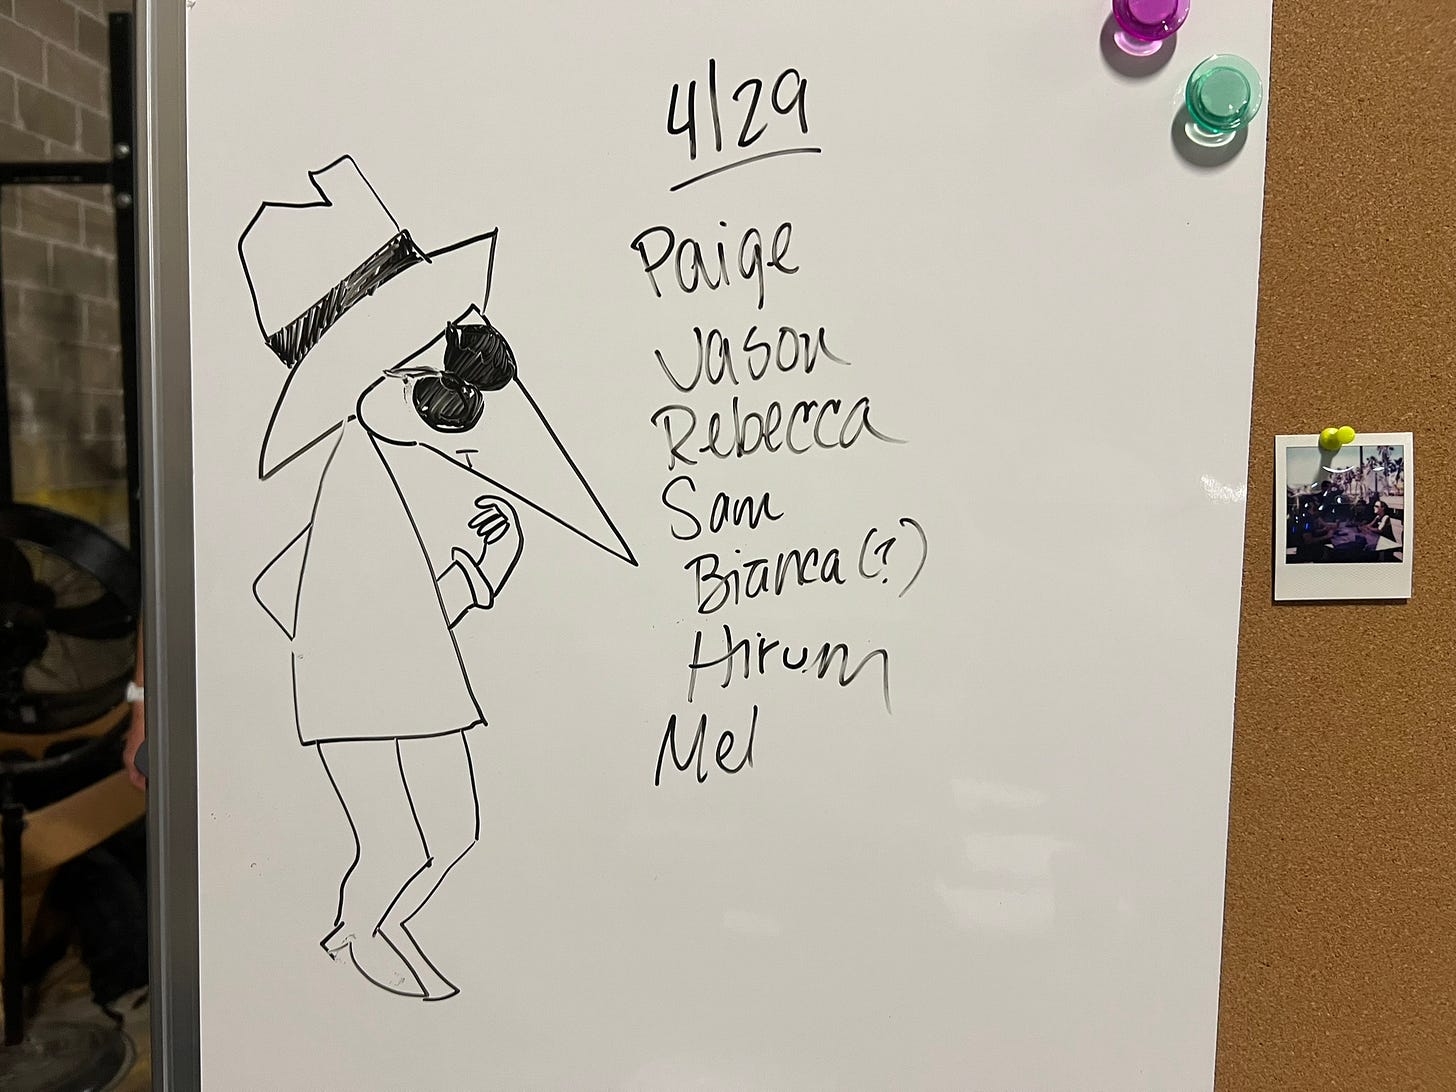 4/29
Paige
Jason
Rebecca
Sam
Bianca (?)
Hirum
Mel